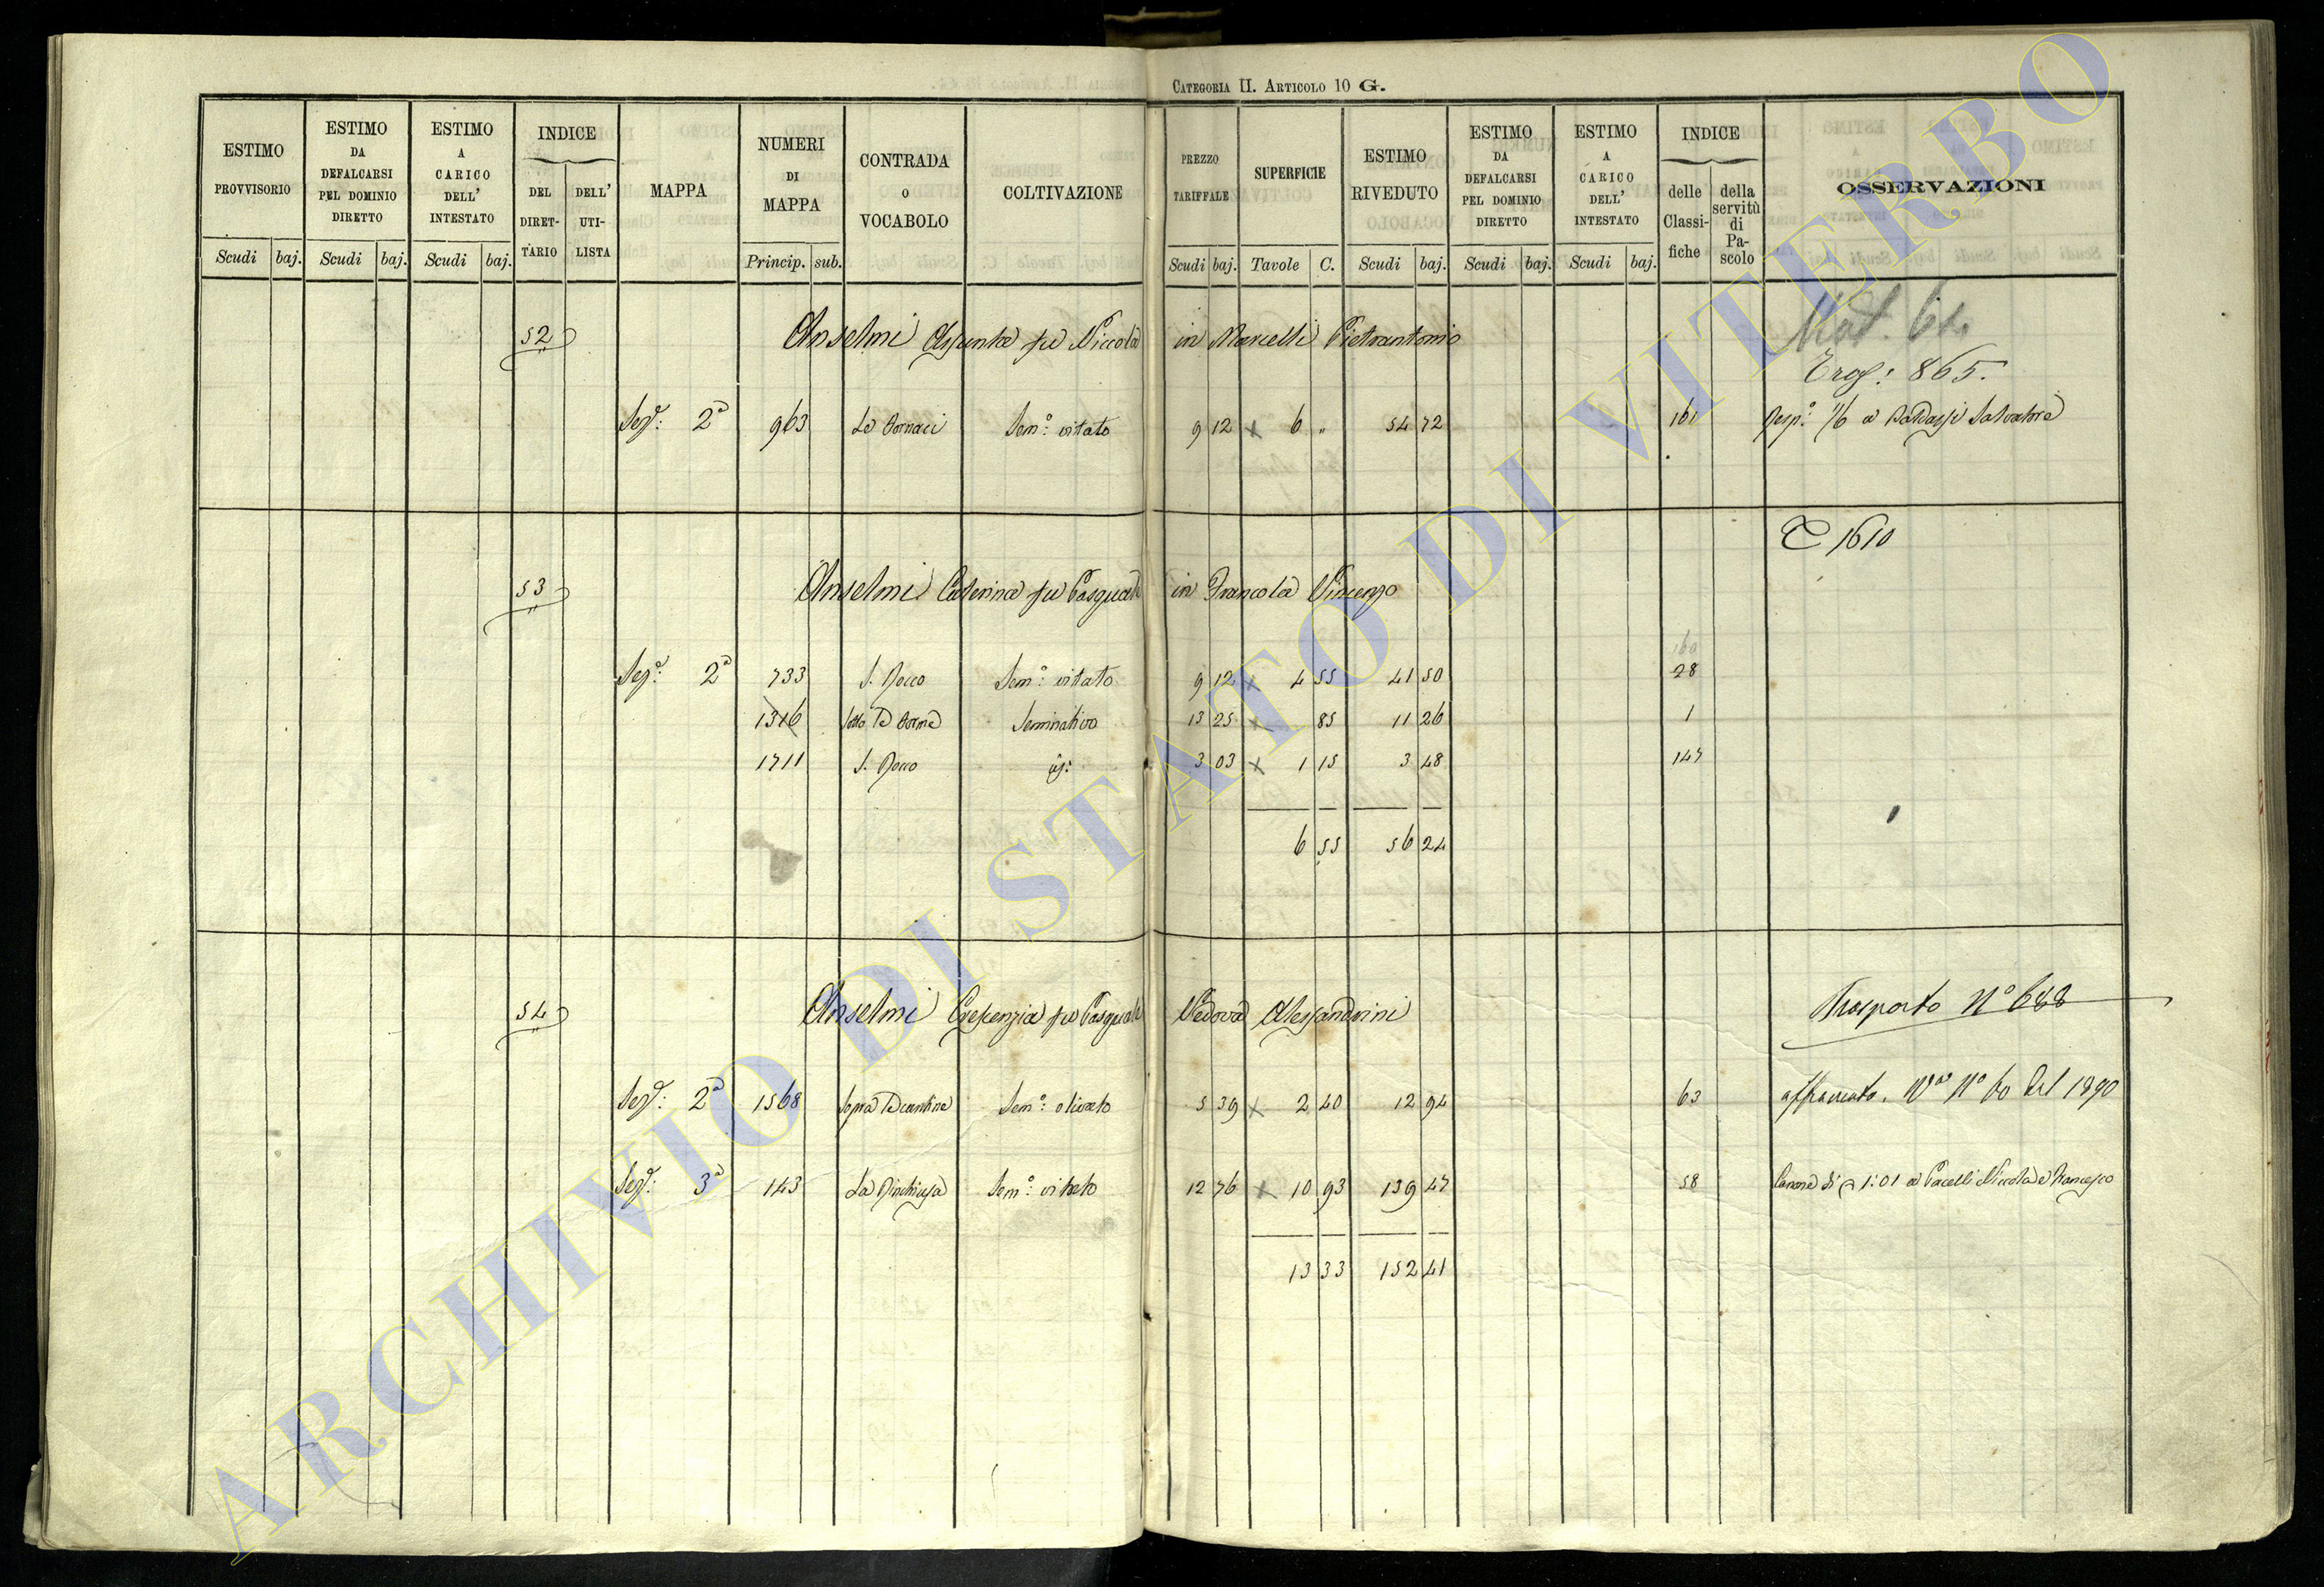 CATEGORIA II. ARTICOLO 10 G.
ESTIMO PROVVISORIO Scudi baj.
ESTIMO DA DEFALCARSI PEL DOMINIO DIRETTO Scudi baj.
ESTIMO A CARICO DELL' INTESTATO Scudi baj.
INDICE DEL DIRET-TARIO DELL' UTI-LISTA
MAPPA
NUMERI DI MAPPA Princip. sub.
CONTRADA O VOCABOLO
COLTIVAZIONE
PREZZO TARIFFALE Scudi baj.
SUPERFICIE Tavole C.
ESTIMO RIVEDUTO Scudi baj.
ESTIMO DA DEFALCARSI PEL DOMINIO DIRETTO Scudi baj.
ESTIMO A CARICO DELL' INTESTATO Scudi baj.
INDICE delle Classi-fiche della servitù di Pa-scolo
OSSERVAZIONI
52 Anselmi Assunta fu Niccola in Marcelli Pietrantonio
865.
Sez.e: 2a 963 Le Fornaci Sem.o: vitato 9 12 x 6 „ 54 72 161 1/6 a Salvatore
1610
53 Anselmi Caterina fu Pasquale in Francola Vincenzo
160
Sez.e: 2a 733 S. Rocco Sem.o: vitato 9 12 x 4 55 41 50 28
1316 Sotto le Seminativo 13 25 x 85 11 26 1
1711 S. Rocco 3 03 x 1 15 3 48 147
6 55 56 24
54 Anselmi Crescenzia fu Pasquale Vedova Alessandrini
Trasporto No 688
Sez.e: 2a 1568 Sopra le cantine Sem.o: olivato 5 39 x 2 40 12 94 63 affrancato. No 60 del 1890
Sez.e: 3a 143 La Rinchiusa Sem.o: vitato 12 76 x 10 93 139 47 58 Canone di 1:01 a Pacelli Niccola e Francesco
13 33 152 41
ARCHIVIO DI STATO DI VITERBO